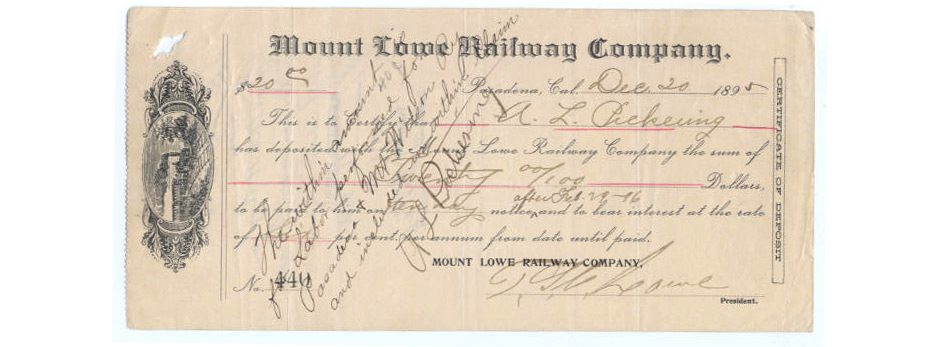 Mount Lowe Railway Company.
$20 00 Pasadena, Cal. Dec. 20 1895
This is to Certify that A. L. Pickering
has deposited with the Mount Lowe Railway Company the sum of
Twenty 00/100 Dollars,
after Feb. 29-96
to be paid to him on ten day notice, and to bear interest at the rate
of per cent. per annum from date until paid.
MOUNT LOWE RAILWAY COMPANY,
No. 440 T. S. C. Lowe
President.
CERTIFICATE OF DEPOSIT
The within amount
for Labor performed on
Pasadena & Mt. Wilson Ry
and included within claim